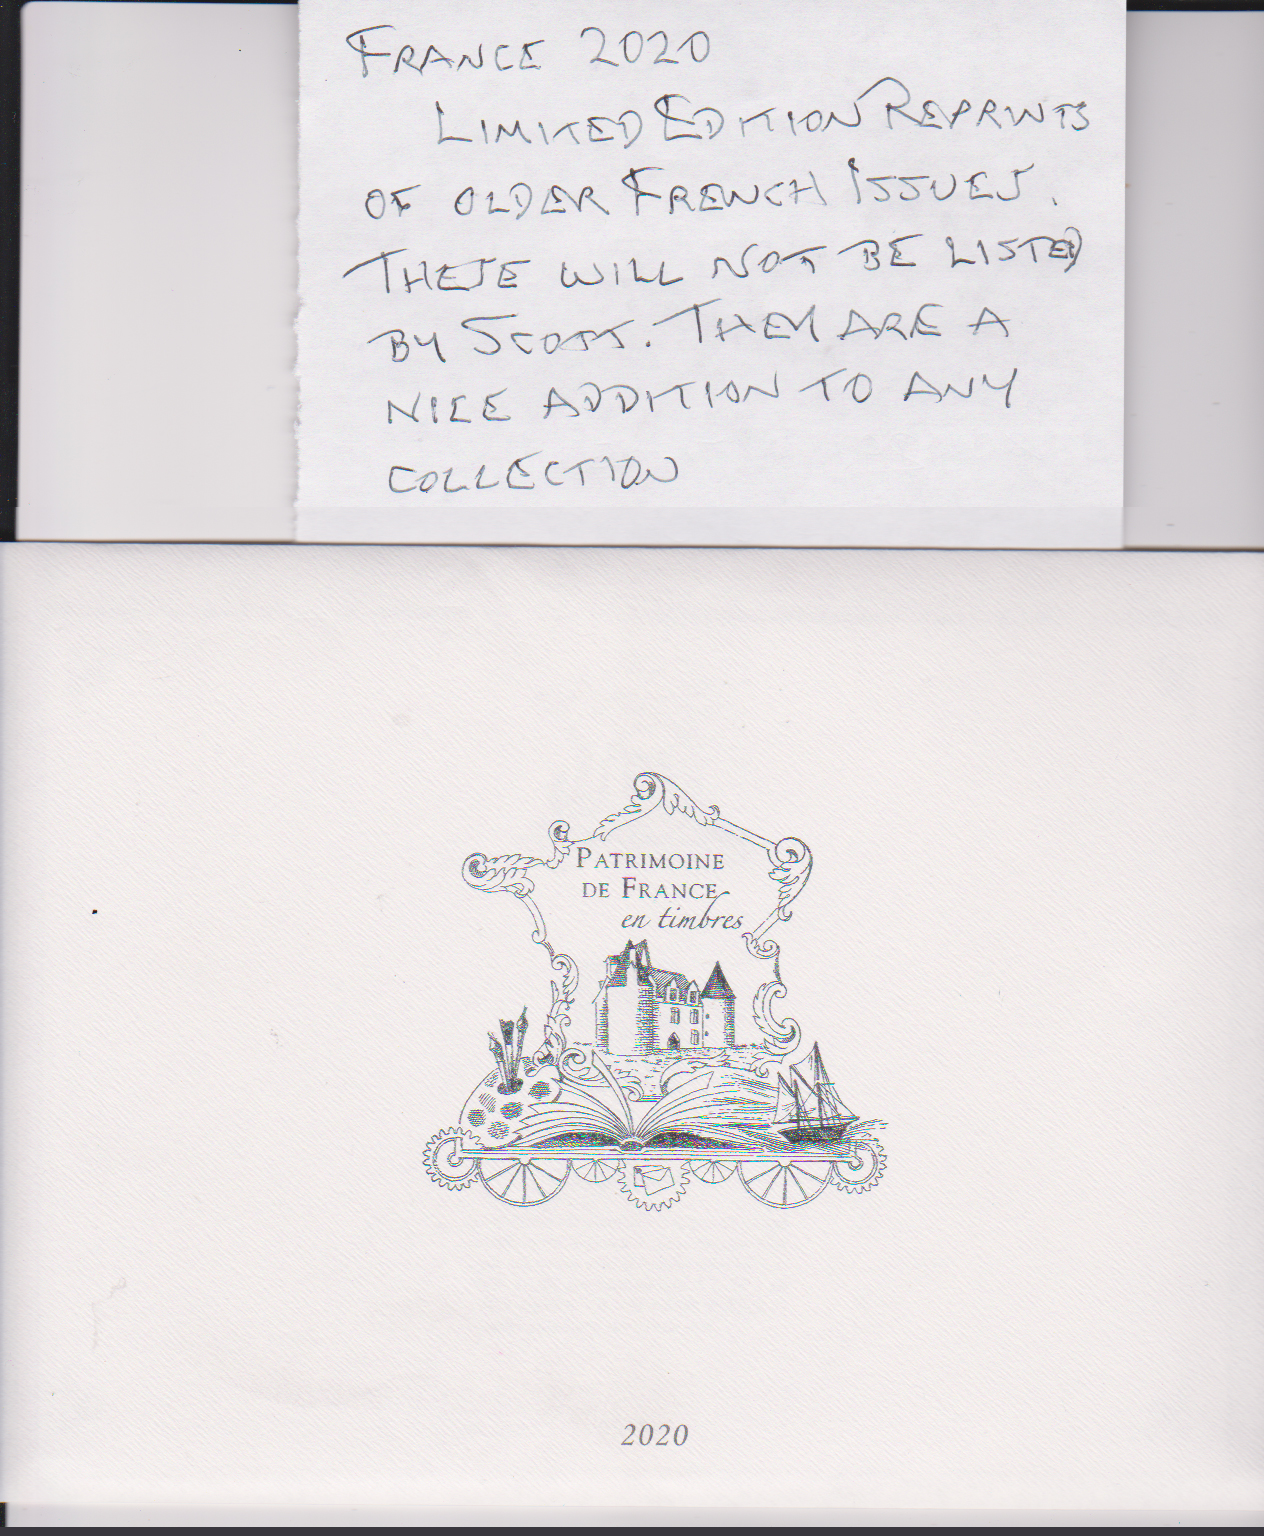 FRANCE 2020
LIMITED EDITION REPRINTS
OF OLDER FRENCH ISSUES.
THESE WILL NOT BE LISTED
BY SCOTT. THEY ARE A
NICE ADDITION TO ANY
COLLECTION
PATRIMOINE
DE FRANCE
en timbres
2020